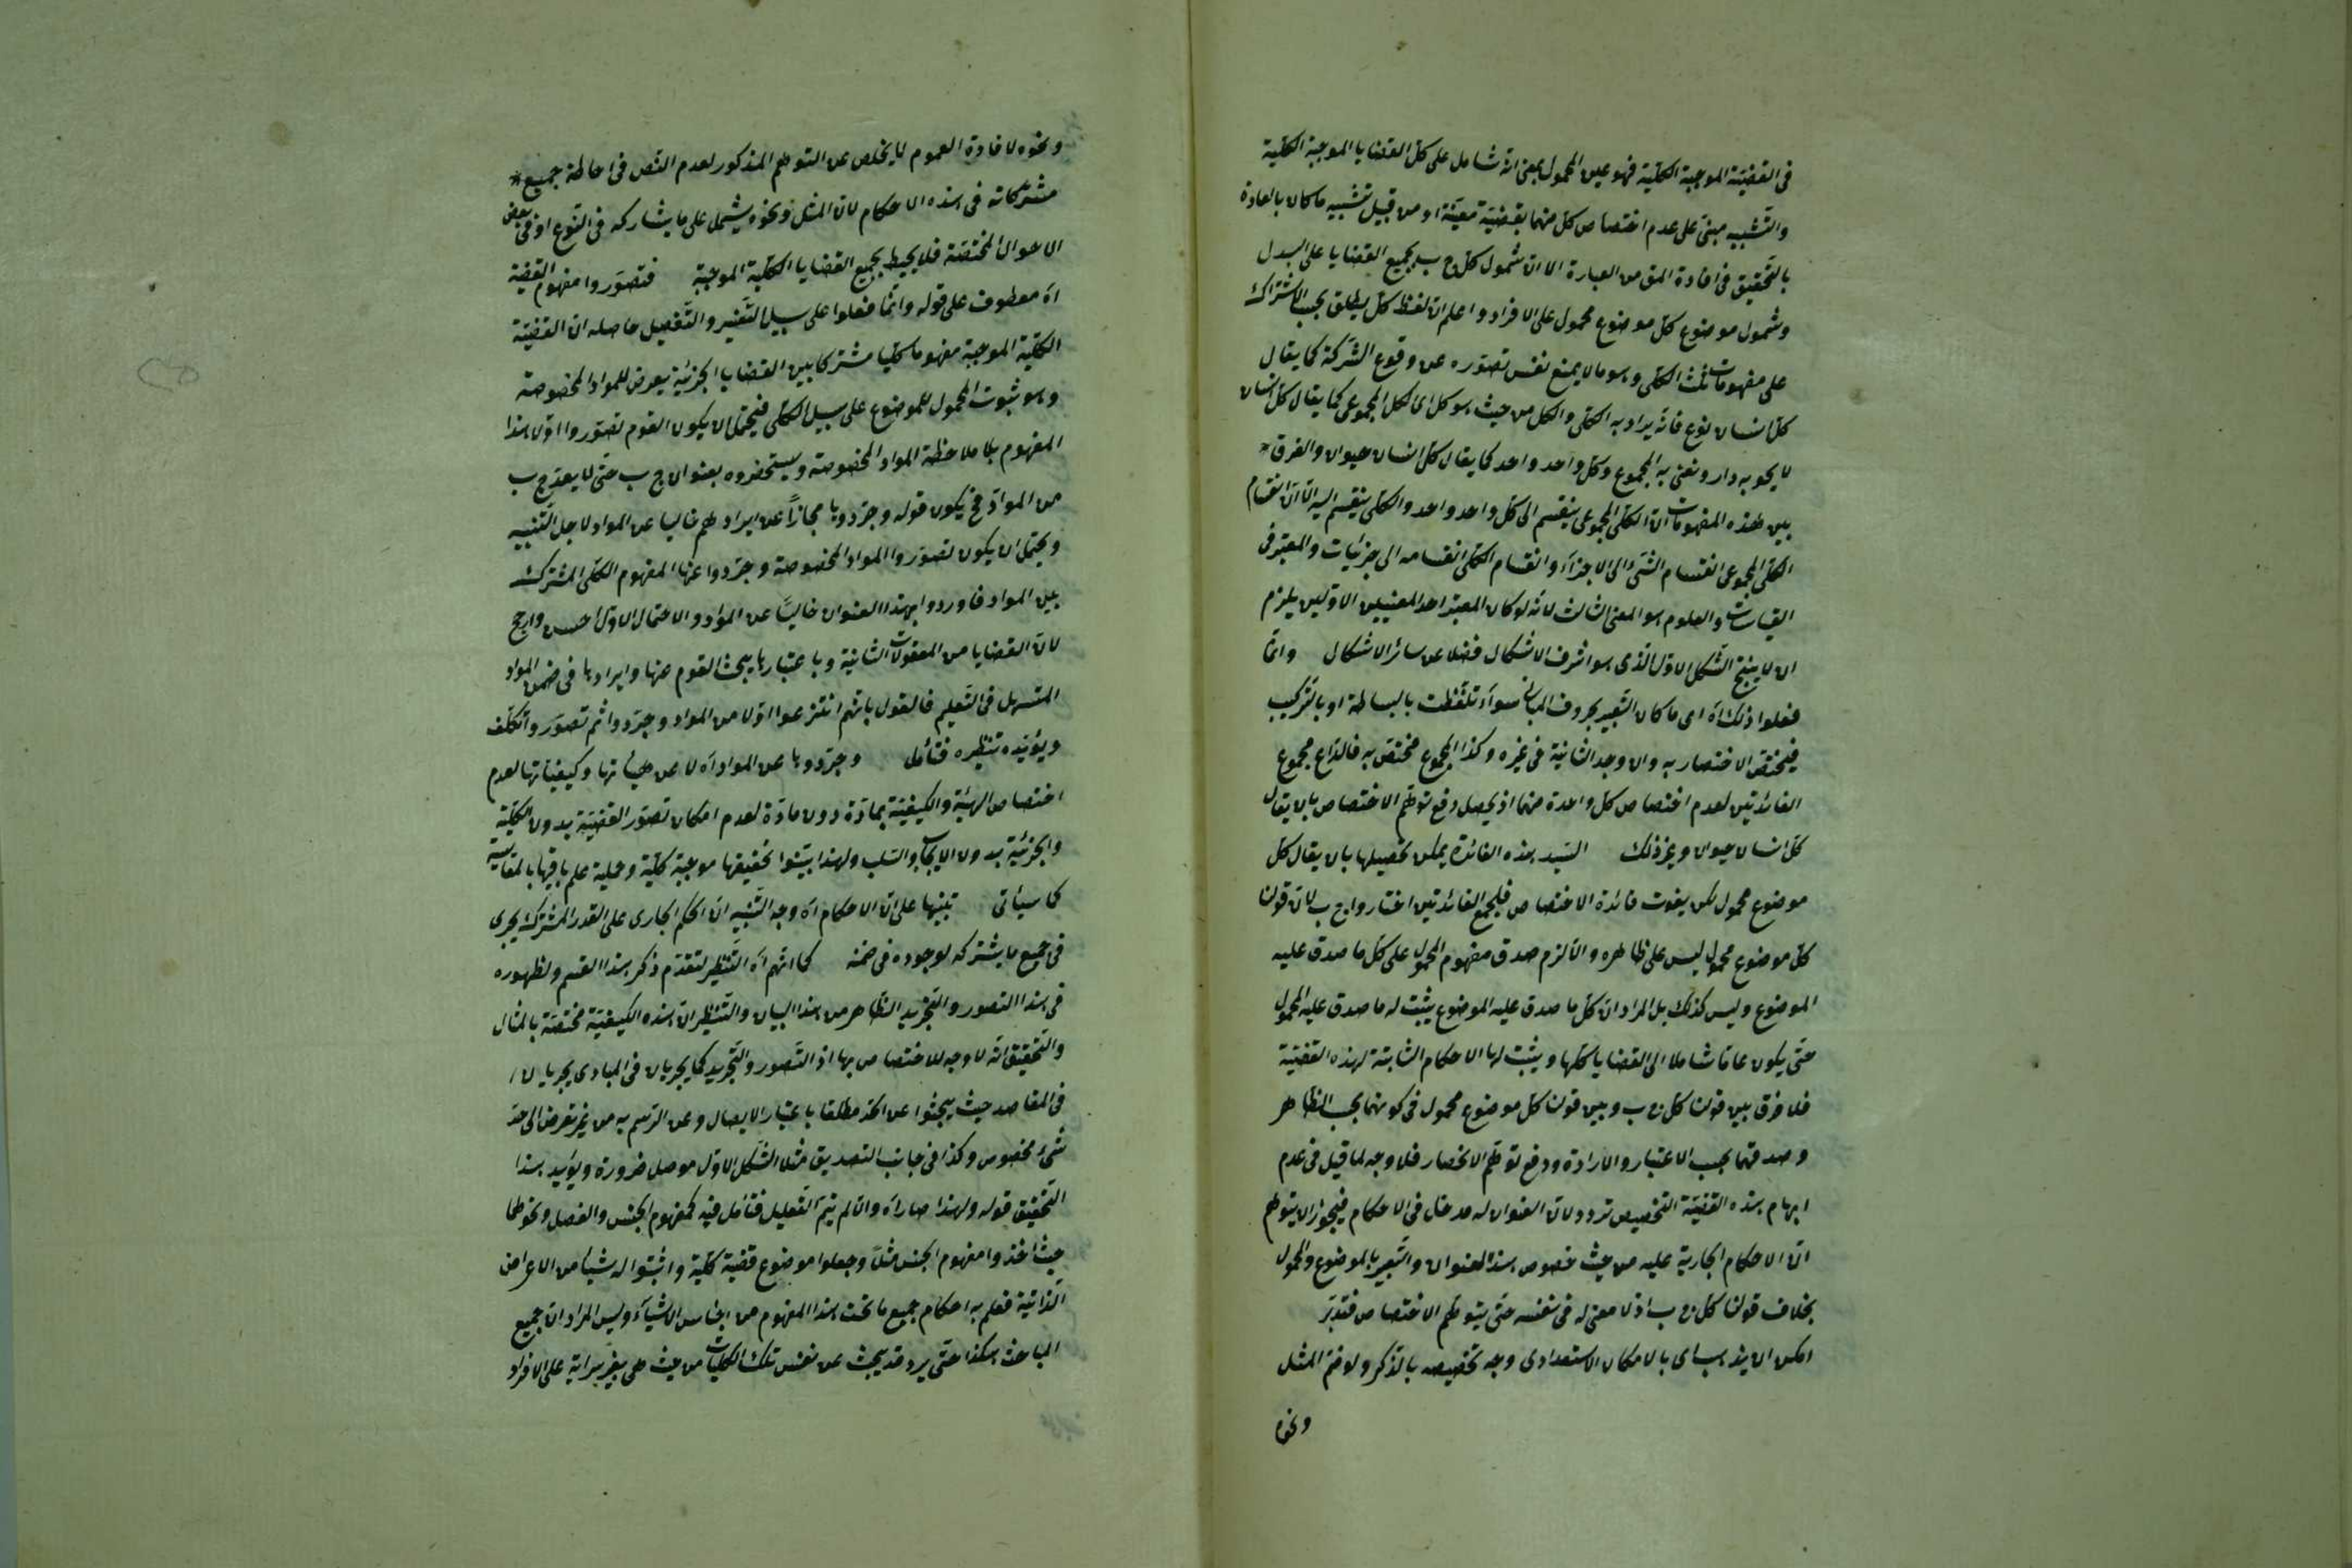 فى القضيّة الموجبة الكليّة فهو عين المحمول بمعنى انه شامل على كل القضايا الموجبة الكلية
والتّشبيه مبنىّ على عدم اختصاص كل منهما بقضيّة معيّنة او من قبيل تشبيه ما كان بالعادة
بالتّحقيق فى افادة المق من العبارة الا ان شمول كل ج ب بجميع القضايا على البدل
وشمول موضوع كل موضوع محمول على الافراد واعلم ان لفظ كل يطلق بحسب الاشتراك
على مفهومات ثلث الكلى وهو ما لا يمنع نفس تصوّره عن وقوع الشّركة كما يقال
كل انسان نوع فانّه يراد به الكلى والكل من حيث هو كل اى الكل المجموعى كما يقال كل انسان
لا يحويه دار ونعنى به المجموع وكل واحد واحد كما يقال كل انسان حيوان والفرق
بين هذه المفهومات ان الكلّ المجموعى ينقسم الى كل واحد واحد والكلى ينقسم اليه الّا ان انقسام
الكلّ المجموعى انقسام الشّئ الى الاجزاء وانقسام الكلى انقسامه الى جزئيات والمعتبر فى
القياسات والعلوم هو المعنى الثالث لانّه لو كان المعتبر احد المعنيين الاوّلين يلزم
ان لا ينتج الشّكل الاوّل الّذى هو اشرف الاشكال فضلا عن سائر الاشكال وانّما
فعلوا ذلك اه اى ما كان التّعبير بحروف المبانى سواء تلفّظت بالبساطة او بالتّركيب
فيختصّ الاختصار به والا وجد الثانية فى غيره وكذا المجموع مختصّ به فالدّاعى مجموع
الفائدتين لعدم اختصاص كل واحدة منهما اذ يحصل دفع توهّم الاختصاص بان يقال
كل انسان حيوان وغير ذلك السّيد هذه الفائدة يمكن تحصيلها بان يقال كل
موضوع محمول لكن يفوت فائدة الاختصاص فلجمع الفائدتين اختاروا ج ب لان قولنا
كل موضوع محمول ليس على ظاهره والّا لزم صدق مفهوم المحمول على كل ما صدق عليه
الموضوع وليس كذلك بل المراد ان كل ما صدق عليه الموضوع يثبت له ما صدق عليه المحمول
حتّى يكون عامّا شاملا الى القضايا كلّها ويثبت لها الاحكام الثابتة لهذه القضيّة
فلا فرق بين قولنا كل ج ب وبين قولنا كل موضوع محمول فى كونهما بحسب الظاهر
وصدقهما بحسب الاعتبار والارادة ودفع توهّم الانحصار فلا وجه لما قيل فى عدم
ابهام هذه القضيّة التخصيص تردد لان العنوان له مدخل فى الاحكام فيجوز ان يتوهم
انّ الاحكام الجارية عليه من حيث خصوص هذا العنوان والتّعبير بالموضوع والمحمول
بخلاف قولنا كل ج ب اذ لا معنى له فى نفسه حتّى يتوهّم الاختصاص فتدبّر
امكن ان يذهب اى بالامكان الاستعدادى وجه تخصيصه بالذكر ولو ضمّ المثل
ونحوه
ونحوه لافادة العموم لا يخلص عن التوهّم المذكور لعدم النّص فى احاطة جميع
مشتركاته فى هذه الاحكام لانّ المثل ونحوه يشمل على ما يشاركه فى النّوع او فى بعض
الاحوال المختصّة فلا يحيط بجميع القضايا الكليّة الموجبة فتصوّروا مفهوم القضية
اه معطوف على قوله وانّما فعلوا على سبيل التّفسير والتّفصيل حاصله ان القضيّة
الكليّة الموجبة مفهوما كليا مشتركا بين القضايا الجزئيّة يعرض للمواد المخصوصة
وهو ثبوت المحمول للموضوع على سبيل الكلى فيحتمل ان يكون القوم تصوّروا اوّلا هذا
المفهوم بلا ملاحظة المواد المخصوصة ويستحضروه بعنوان ج ب حتّى لا يعدّ ج ب
من الموادّ فح يكون قوله وجرّدوها مجازًا عن ايرادهم خاليا عن المواد لاجل التّنبيه
ويحتمل ان يكون تصوّروا المواد المخصوصة وجرّدوا عنها المفهوم الكلى المشترك
بين المواد فاوردوا بهذا العنوان خاليًا عن الموادّ والاحتمال الاوّل احسن وارجح
لانّ القضايا من المعقولات الثانية وباعتبارها يبحث القوم عنها وايرادها فى ضمن المواد
لتسهيل فى التّعليم فالقول بانّهم انتزعوا اوّلا من المواد وجرّدوا ثم تصوّروا تكلّف
ويؤيّده تنظيره فتأمل وجرّدوها عن المواد اه لا عن هيئاتها وكيفيّاتها لعدم
اختصاص الهيئة والكيفيّة بمادّة دون مادّة لعدم امكان تصوّر القضيّة بدون الكليّة
والجزئيّة بدون الايجاب والسّلب ولهذا بيّنوا تحقيقها موجبة كليّة وحملية علم باقيها بالمقايسة
كما سيأتى تنبيها على انّ الاحكام اه وجه التّنبيه انّ الحكم الجارى على القدر المشترك يجرى
فى جميع ما يشتركه لوجوده فى ضمنه كما انّهم اه التّنظير لتقدّم ذكر هذا القسم ولظهوره
فى هذا التصور والتجريد الظّاهر من هذا البيان والتّنظير انّ هذه الكيفيّة مختصّة بالمثال
والتّحقيق انّه لا وجه للاختصاص بها اذ التّصور والتّجريد كما يجريان فى المبادى يجريان
فى المقاصد حيث يبحثوا عن الحدّ مطلقا باعتبار الايصال وعن الرّسم به من غير تعرض الى حدّ
شئ مخصوص وكذا فى جانب التصديق مثلا الشّكل الاوّل موصل ضرورة ويؤيد هذا
التّحقيق قوله ولهذا صار اه وان لم يتمّ التّعليل فتأمل فيه كمفهوم الجنس والفصل ونحوهما
حيث اخذوا مفهوم الجنس مثلًا وجعلوا موضوع قضية كليّة واثبتوا له شيئا من الاعراض
الذّاتية فعلم به احكام جميع ما تحت هذا المفهوم من اجناس الاشياء وليس المراد انّ جميع
المباحث هكذا حتّى يرد قد يبحث عن نفس تلك الكليّات من حيث هى بغير سراية على الافراد